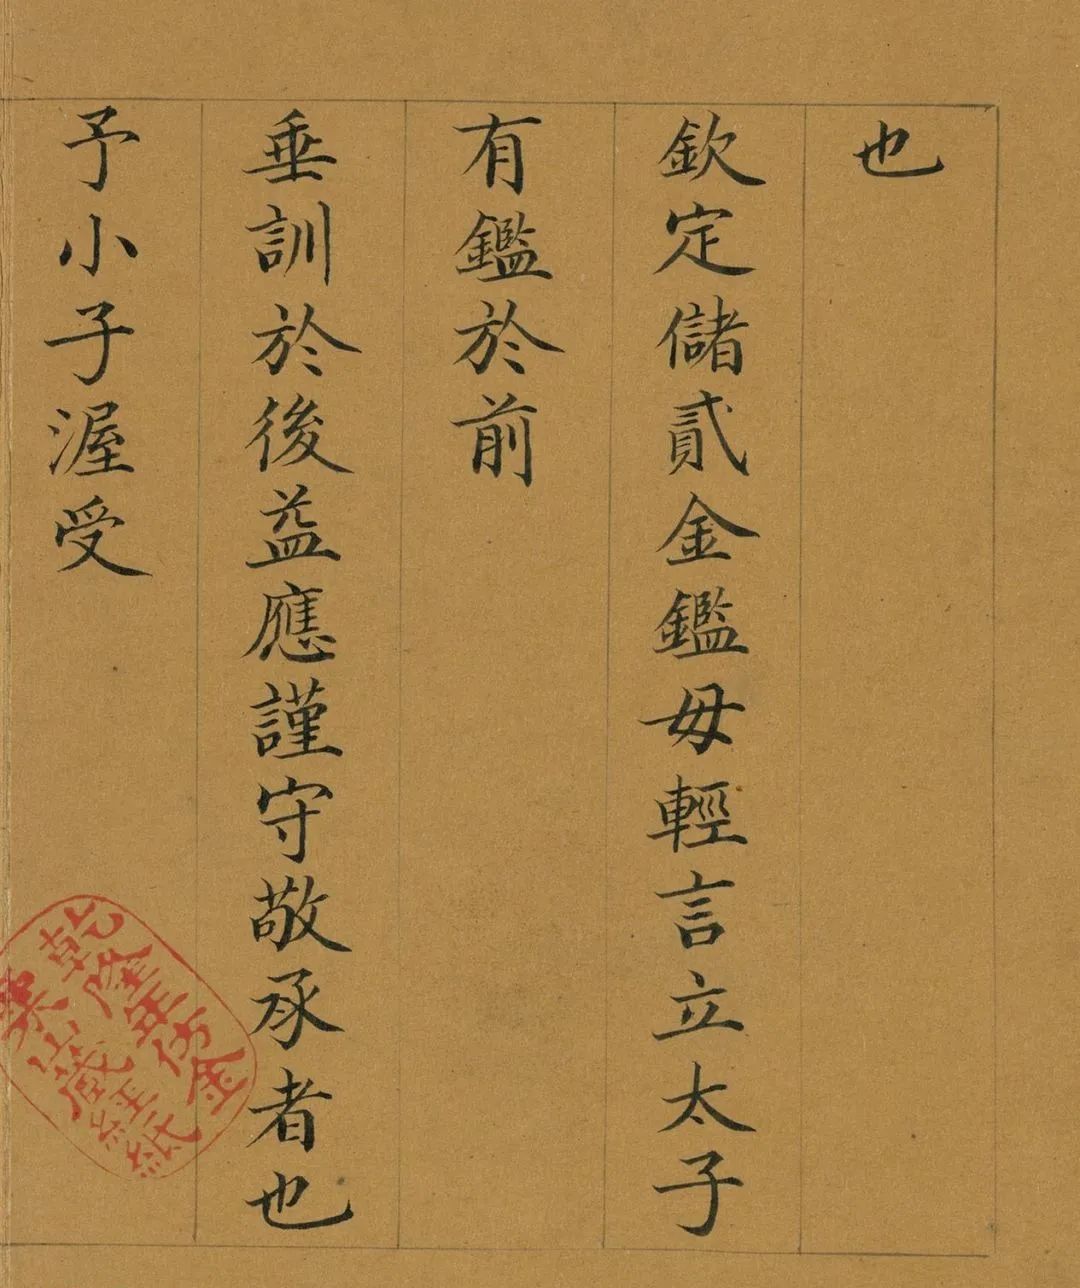 也
欽定儲貳金鑑毋輕言立太子
有鑑於前
垂訓於後益應謹守敬承者也
予小子渥受
乾隆年仿金
粟山藏經紙